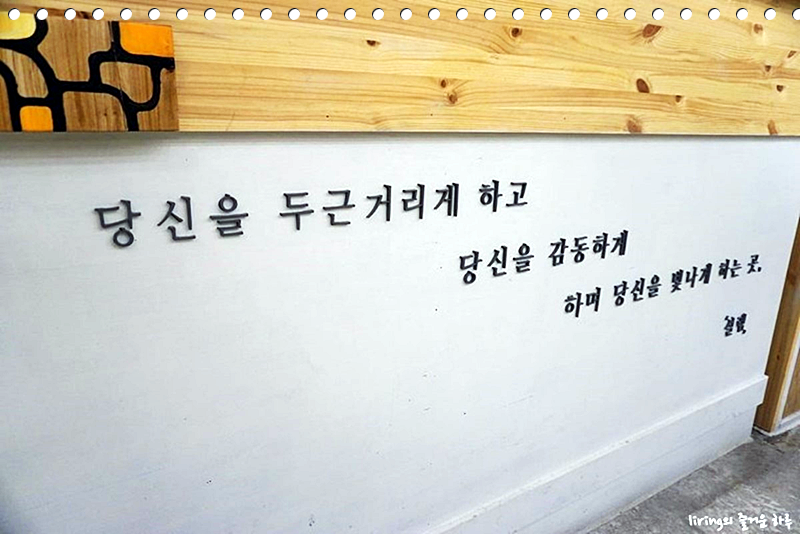 당신을 두근거리게 하고
당신을 감동하게
하며 당신을 빛나게 하는 곳.
liring의 즐거운 하루